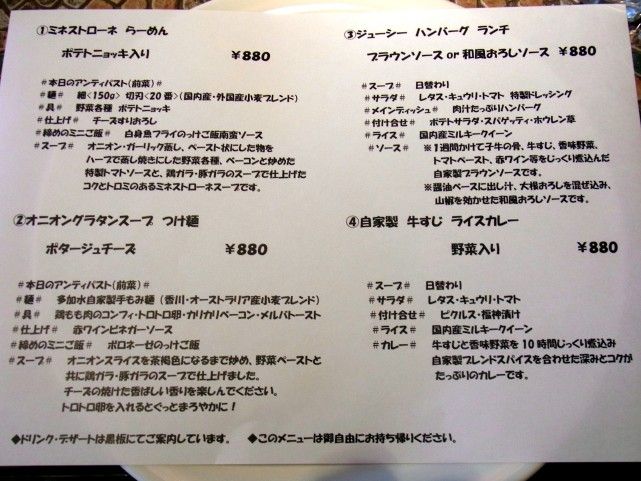 ①ミネストローネ らーめん
ポテトニョッキ入り ￥880
#本日のアンティパスト(前菜)#
#麺# 細<150g> 切刃<20番>(国内産・外国産小麦ブレンド)
#具# 野菜各種 ポテトニョッキ
#仕上げ# チーズすりおろし
#締めのミニご飯# 白身魚フライのっけご飯南蛮ソース
#スープ# オニオン・ガーリック蒸し、ペースト状にした物を
ハーブで蒸し焼きにした野菜各種、ベーコンと炒めた
特製トマトソースと、鶏ガラ・豚ガラのスープで仕上げた
コクとトロミのあるミネストローネスープです。
②オニオングラタンスープ つけ麺
ポタージュチーズ ￥880
#本日のアンティパスト(前菜)#
#麺# 多加水自家製手もみ麺 (香川・オーストラリア産小麦ブレンド)
#具# 鶏もも肉のコンフィ・トロトロ卵・カリカリベーコン・メルバトースト
#仕上げ# 赤ワインビネガーソース
#締めのミニご飯# ボロネーゼのっけご飯
#スープ# オニオンスライスを茶褐色になるまで炒め、野菜ペーストと
共に鶏ガラ・豚ガラのスープで仕上げました。
チーズの焼けた香ばしい香りを楽しんでください。
トロトロ卵を入れるとぐっとまろやかに！
③ジューシー ハンバーグ ランチ
ブラウンソース or 和風おろしソース ￥880
#スープ# 日替わり
#サラダ# レタス・キュウリ・トマト 特製ドレッシング
#メインディッシュ# 肉汁たっぷりハンバーグ
#付け合せ# ポテトサラダ・スパゲッティ・ホウレン草
#ライス# 国内産ミルキークイーン
#ソース# ※1週間かけて子牛の骨、牛すじ、香味野菜、
トマトペースト、赤ワイン等をじっくり煮込んだ
自家製ブラウンソースです。
※醤油ベースに出し汁、大根おろしを混ぜ込み、
山椒を効かせた和風おろしソースです。
④自家製 牛すじ ライスカレー
野菜入り ￥880
#スープ# 日替わり
#サラダ# レタス・キュウリ・トマト
#付け合せ# ピクルス・福神漬け
#ライス# 国内産ミルキークイーン
#カレー# 牛すじと香味野菜を10時間じっくり煮込み
自家製ブレンドスパイスを合わせた深みとコクが
たっぷりのカレーです。
◆ドリンク・デザートは黒板にてご案内しています。 ◆このメニューは御自由にお持ち帰りください。